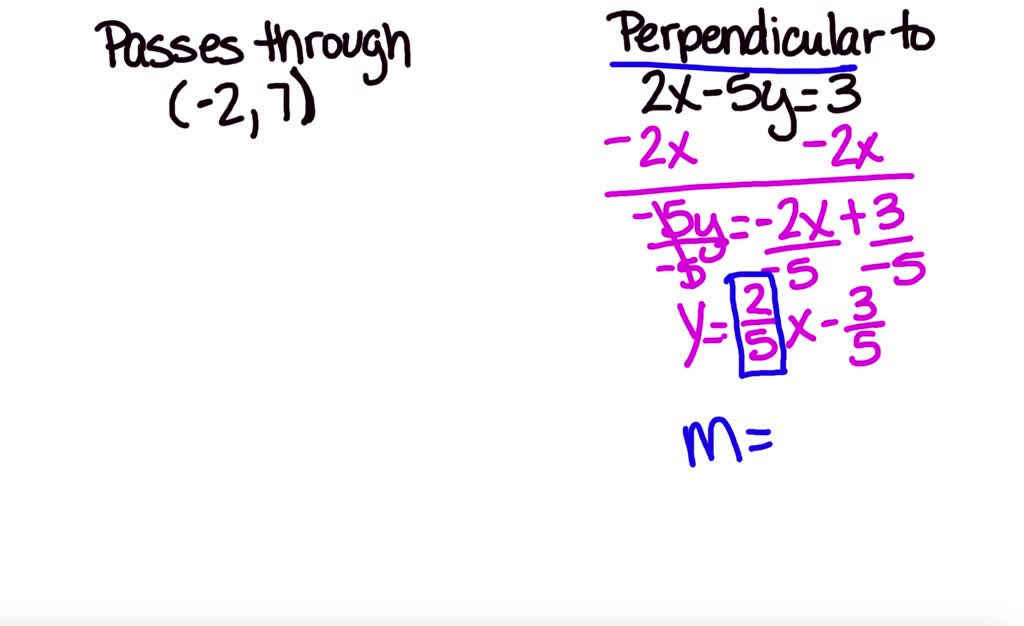 Passes through
(-2, 7)
Perpendicular to
2x-5y=3
-2x -2x
-5y = -2x + 3
-5 -5 -5
y = 2/5 x - 3/5
m =